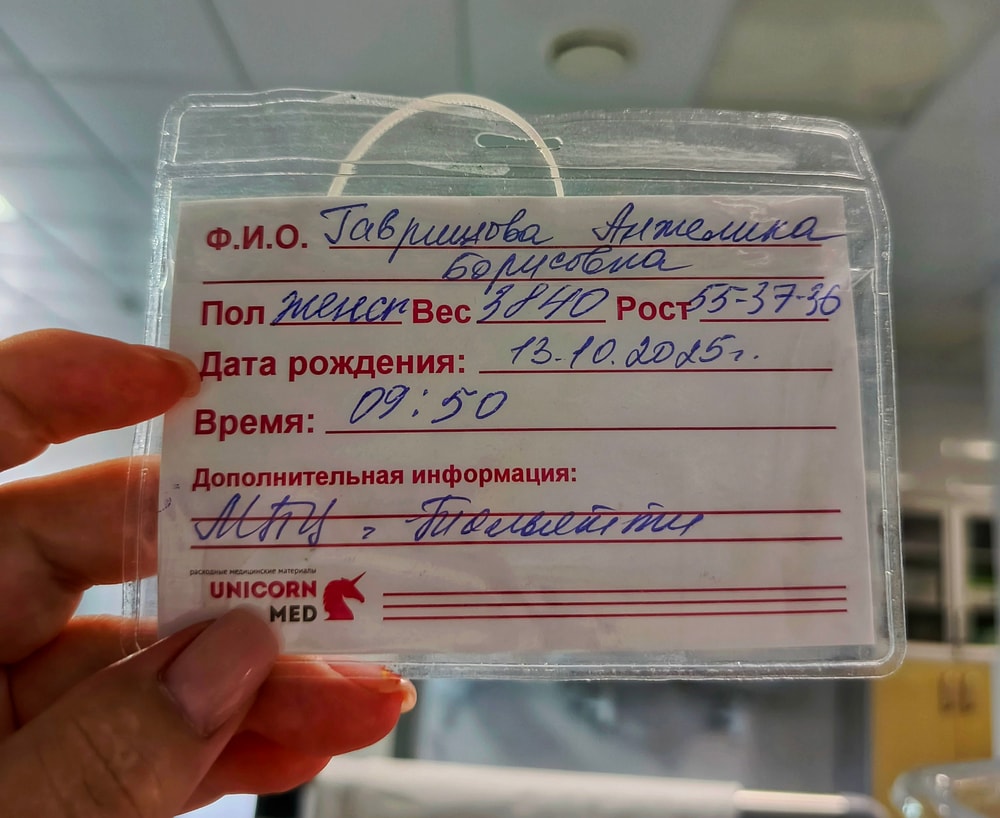 Ф.И.О. Анжелика
Борисовна
Пол женск Вес 3840 Рост 55-37-36
Дата рождения: 13.10.2025г.
Время: 09:50
Дополнительная информация:
МБЦ г. Тольятти
расходные медицинские материалы
UNICORN
MED